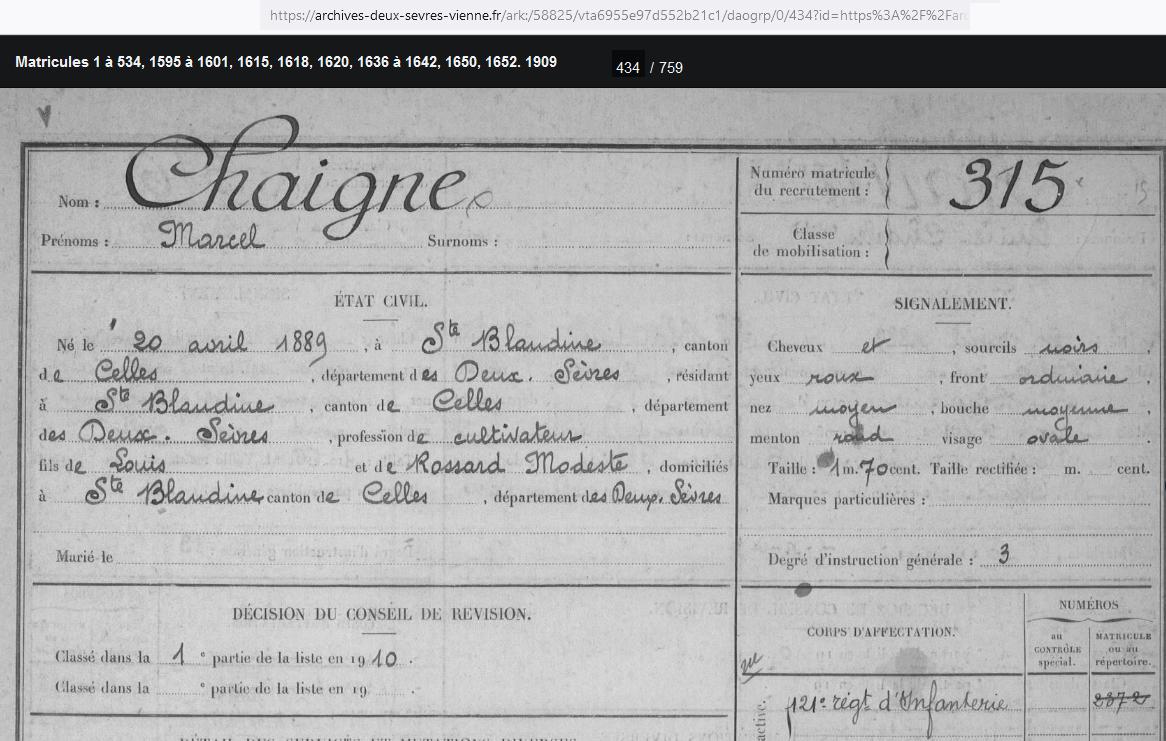 https://archives-deux-sevres-vienne.fr/ark:/58825/vta6955e97d552b21c1/daogrp/0/434?id=https%3A%2F%2Far
Matricules 1 à 534, 1595 à 1601, 1615, 1618, 1620, 1636 à 1642, 1650, 1652. 1909
434 / 759
Nom : Chaigne
Prénoms : Marcel Surnoms :
Numéro matricule du recrutement : 315
Classe de mobilisation :
ÉTAT CIVIL.
Né le 20 avril 1889, à Ste Blandine, canton
de Celles, département des Deux-Sèvres, résidant
à Ste Blandine, canton de Celles, département
des Deux-Sèvres, profession de cultivateur
fils de Louis et de Rossard Modeste, domiciliés
à Ste Blandine canton de Celles, département des Deux-Sèvres
Marié le
SIGNALEMENT.
Cheveux et, sourcils noirs,
yeux roux, front ordinaire,
nez moyen, bouche moyenne,
menton rond visage ovale.
Taille : 1 m. 70 cent. Taille rectifiée : m. cent.
Marques particulières :
Degré d'instruction générale : 3
DÉCISION DU CONSEIL DE REVISION.
Classé dans la 1e partie de la liste en 1910.
Classé dans la e partie de la liste en 19 .
CORPS D'AFFECTATION.
NUMÉROS
au CONTRÔLE spécial.
MATRICULE ou au répertoire.
active.
121e régt d'Infanterie
2372